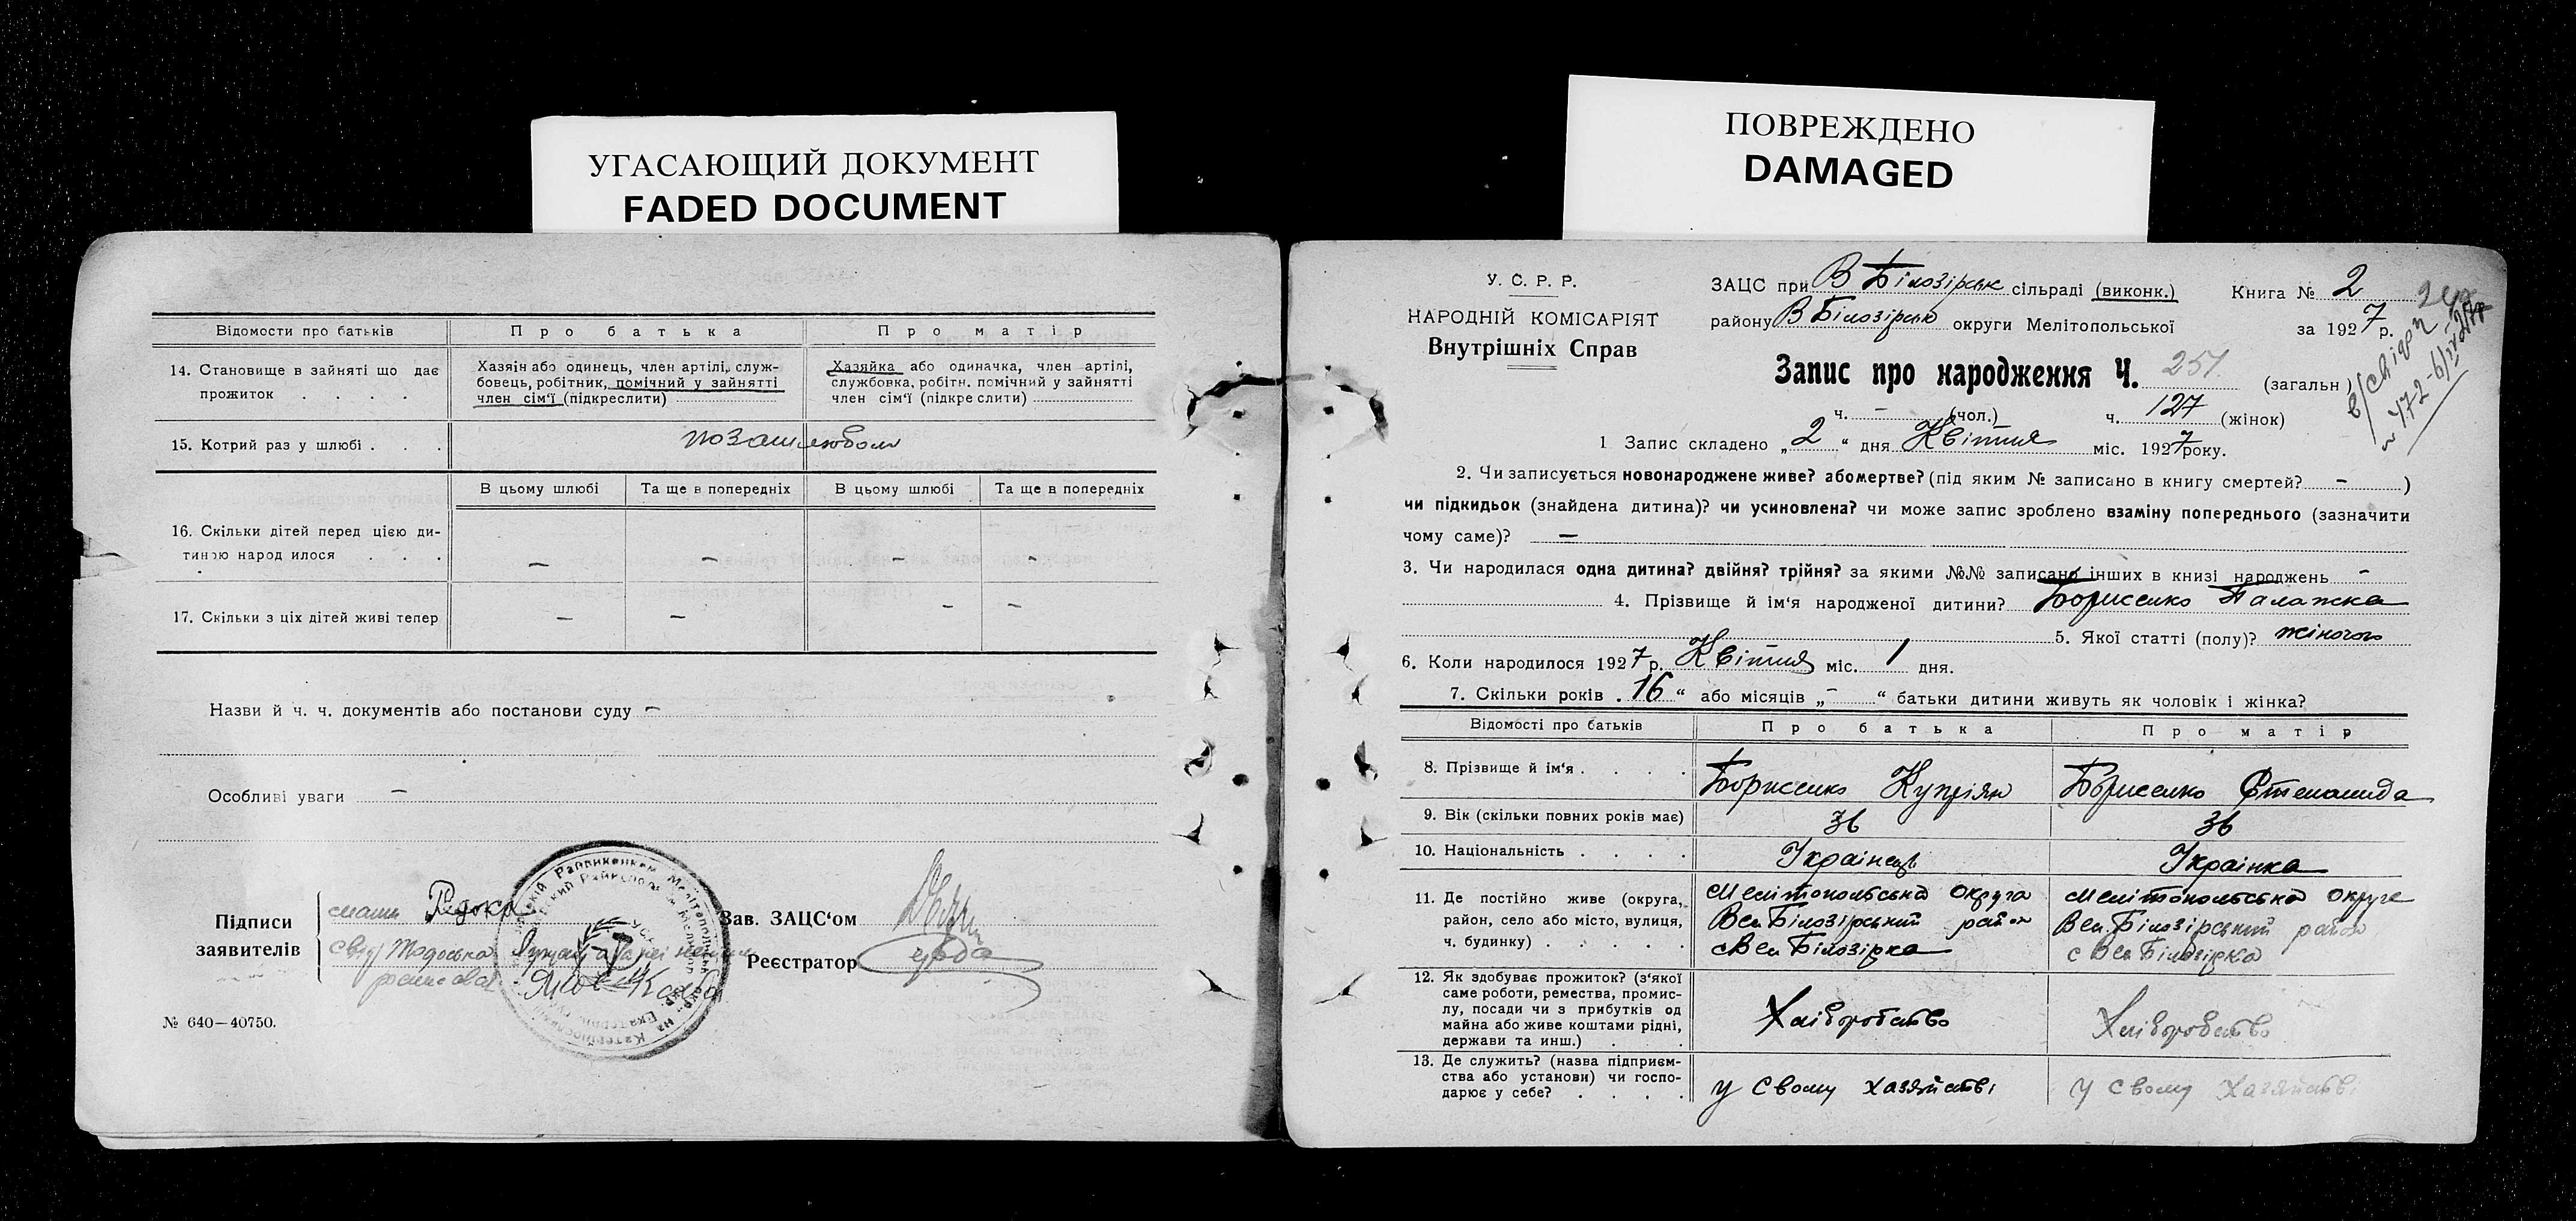 УГАСАЮЩИЙ ДОКУМЕНТ
FADED DOCUMENT
Відомости про батьків
Про батька
Про матір
14. Становище в зайняті що дає
прожиток . . . .
Хазяїн або одинець, член артілі, служ-
бовець, робітник, помічний у зайнятті
член сім'ї (підкреслити)
Хазяйка або одиначка, член артілі,
службовка, робітн. помічний у зайнятті
член сім'ї (підкреслити)
15. Котрий раз у шлюбі . . .
позашлюбом
В цьому шлюбі
Та ще в попередніх
В цьому шлюбі
Та ще в попередніх
16. Скільки дітей перед цією ди-
тиною народилося . . .
– – – –
17. Скільки з ціх дітей живі тепер
– – – –
Назви й ч. ч. документів або постанови суду –
Особливі уваги –
Підписи
заявителів
Зав. ЗАЦС'ом
Реєстратор
№ 640—40750.
ПОВРЕЖДЕНО
DAMAGED
У. С. Р. Р.
НАРОДНІЙ КОМІСАРІЯТ
Внутрішніх Справ
ЗАЦС при В Білозірськ сільраді (виконк.)
Книга № 2
району В Білозірськ округи Мелітопольської
за 1927 р.
Запис про народження Ч. 251 (загальн)
ч. – (чол.) ч. 127 (жінок)
1 Запис складено „2“ дня Квітня міс. 1927 року.
2. Чи записується новонароджене живе? або мертве? (під яким № записано в книгу смертей? – )
чи підкидьок (знайдена дитина)? чи усиновлена? чи може запис зроблено взаміну попереднього (зазначити
чому саме)? –
3. Чи народилася одна дитина? двійня? трійня? за якими №№ записано інших в книзі народжень –
4. Прізвище й ім'я народженої дитини? Борисенко Палажка
5. Якої статті (полу)? жіночого
6. Коли народилося 1927 р. Квітня міс. 1 дня.
7. Скільки років „16“ або місяців „–“ батьки дитини живуть як чоловік і жінка?
Відомості про батьків
Про батька
Про матір
8. Прізвище й ім'я . . . .
Борисенко Купріян
Борисенко Степанида
9. Вік (скільки повних років має)
36
36
10. Національність . . . .
Українець
Українка
11. Де постійно живе (округа,
район, село або місто, вулиця,
ч. будинку) . . . . .
Мелітопольська округа
Вел. Білозірський район
с Вел Білозірка
Мелітопольська округа
Вел. Білозірський район
с Вел Білозірка
12. Як здобуває прожиток? (з'якої
саме роботи, ремества, промис-
лу, посади чи з прибутків од
майна або живе коштами рідні,
держави та инш.) . . .
Хліборобство
Хліборобство
13. Де служить? (назва підприєм-
ства або установи) чи госпо-
дарює у себе? . . . .
у свому хазяйстві
у свому хазяйстві